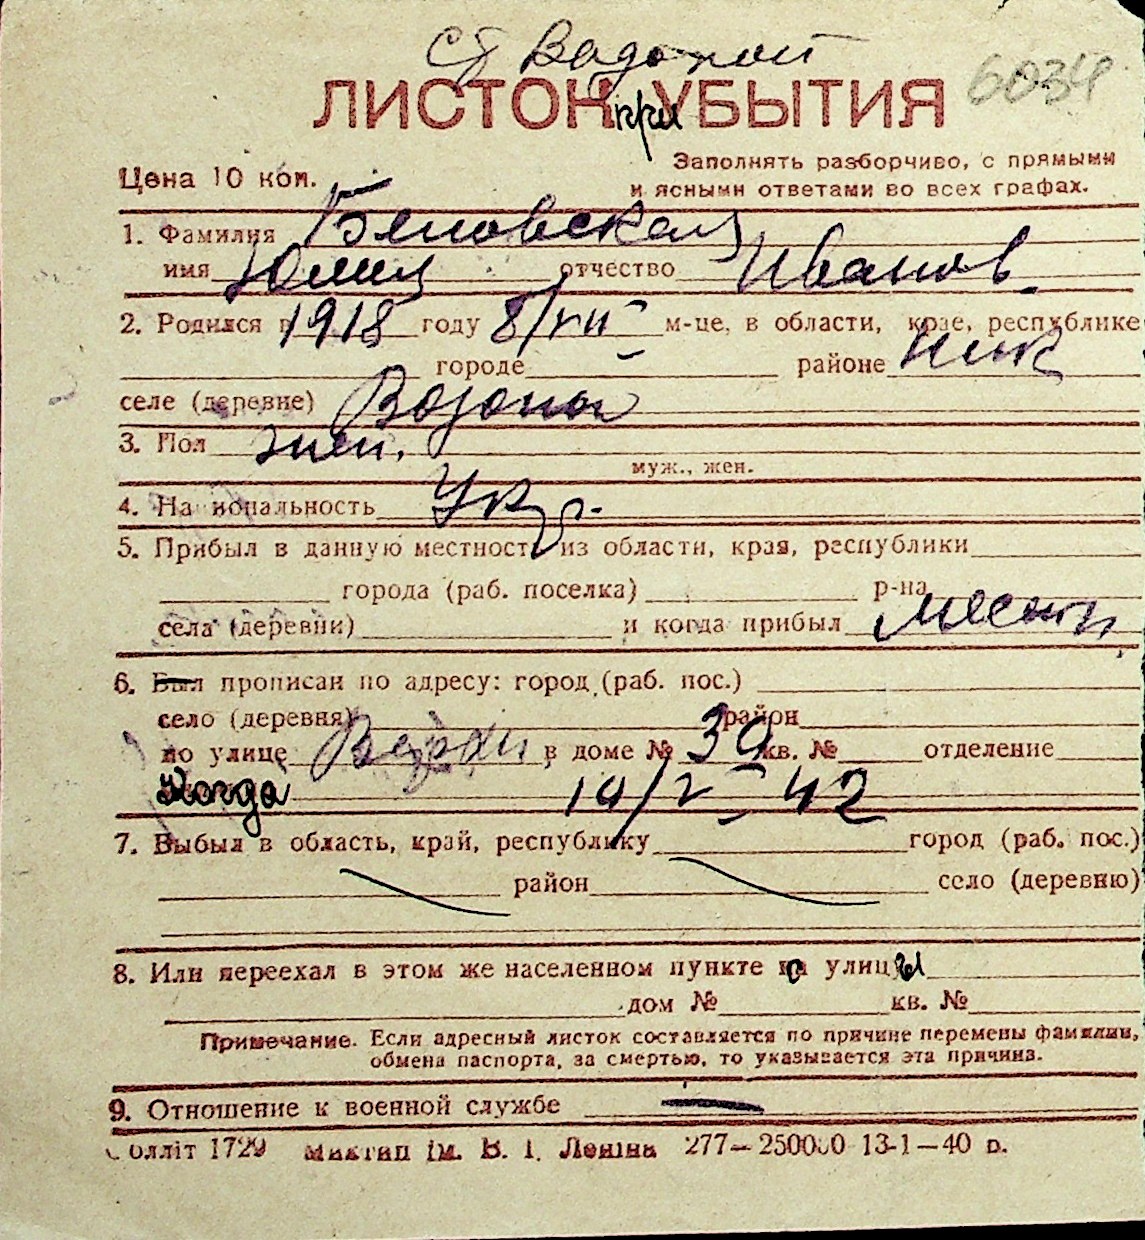 ст Водопой
6034
ЛИСТОК при УБЫТИЯ
Цена 10 коп.
Заполнять разборчиво, с прямыми
и ясными ответами во всех графах.
1. Фамилия
имя Юлия отчество Иванов
2. Родился в 1918 году 8/XII м-це, в области, крае, республике
городе районе Ник
селе (деревне) Водопой
3. Пол жен.
муж., жен.
4. Национальность Укр.
5. Прибыл в данную местность из области, края, республики
города (раб. поселка) р-на
села (деревни) и когда прибыл местн
6. Был прописан по адресу: город (раб. пос.)
село (деревня) район
по улице в доме № 39 кв. № отделение
Когда 10/V 42
7. Выбыл в область, край, республику город (раб. пос.)
район село (деревню)
8. Или переехал в этом же населенном пункте с улицы
дом № кв. №
Примечание. Если адресный листок составляется по причине перемены фамилии,
обмена паспорта, за смертью, то указывается эта причина.
9. Отношение к военной службе —
олліт 1729 ім. В. І. Леніна 277—250000 13-1—40 р.